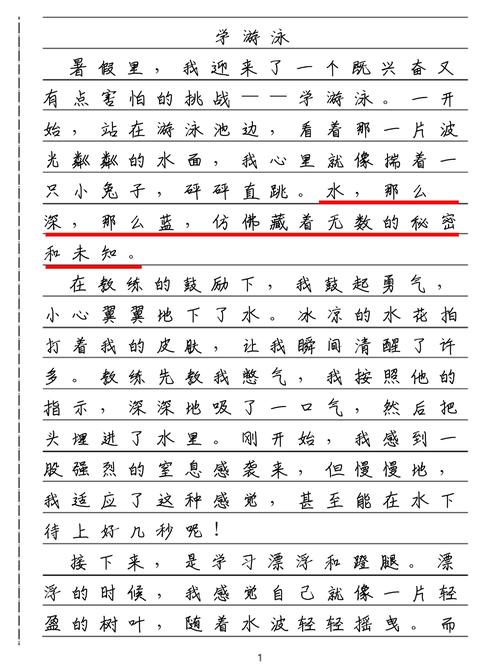 学游泳
暑假里，我迎来了一个既兴奋又
有点害怕的挑战——学游泳。一开
始，站在游泳池边，看着那一片波
光粼粼的水面，我心里就像揣着一
只小兔子，砰砰直跳。水，那么
深，那么蓝，仿佛藏着无数的秘密
和未知。
在教练的鼓励下，我鼓起勇气，
小心翼翼地下了水。冰凉的水花拍
打着我的皮肤，让我瞬间清醒了许
多。教练先教我憋气，我按照他的
指示，深深地吸了一口气，然后把
头埋进了水里。刚开始，我感到一
股强烈的窒息感袭来，但慢慢地，
我适应了这种感觉，甚至能在水下
待上好几秒呢！
接下来，是学习漂浮和蹬腿。漂
浮的时候，我感觉自己就像一片轻
盈的树叶，随着水波轻轻摇曳。而
1